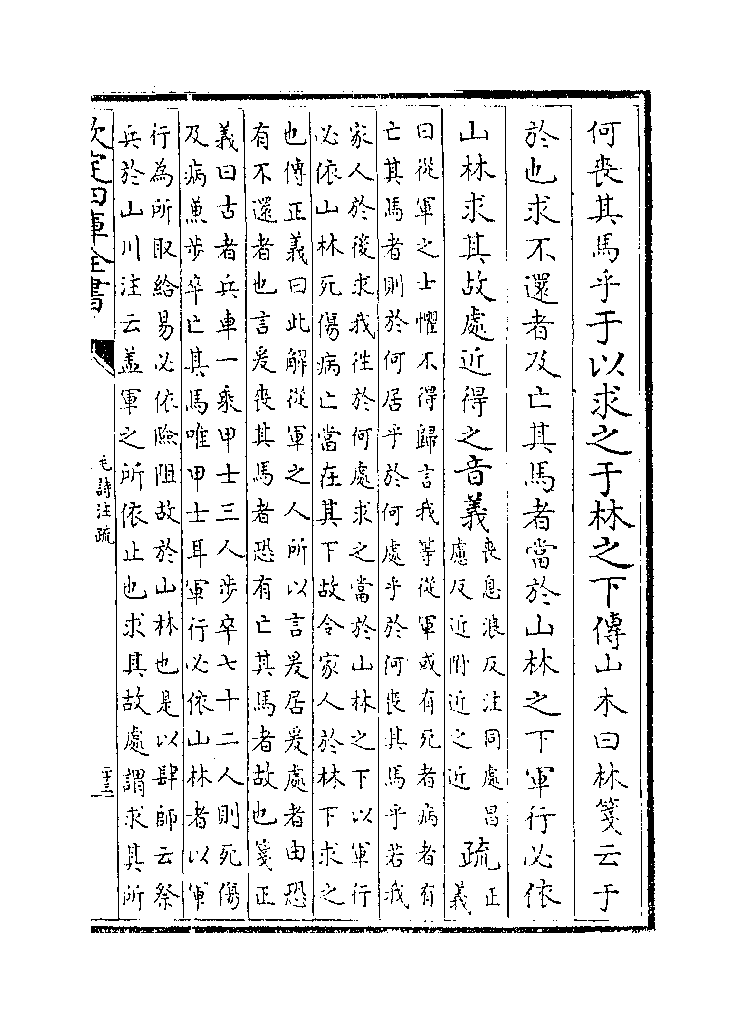 何喪其馬乎于以求之于林之下傳山木曰林箋云于
於也求不還者及亡其馬者當於山林之下軍行必依
山林求其故處近得之音義
喪息浪反注同處昌
慮反近附近之近
疏
正
義
曰從軍之士懼不得歸言我等從軍或有死者病者有
亡其馬者則於何居乎於何處乎於何喪其馬乎若我
家人於後求我往於何處求之當於山林之下以軍行
必依山林死傷病亡當在其下故令家人於林下求之
也傳正義曰此解從軍之人所以言爰居爰處者由恐
有不還者也言爰喪其馬者恐有亡其馬者故也箋正
義曰古者兵車一乘甲士三人步卒七十二人則死傷
及病兼步卒亡其馬唯甲士耳軍行必依山林者以軍
行為所取給易必依險阻故於山林也是以肆師云祭
兵於山川注云蓋軍之所依止也求其故處謂求其所
欽定四庫全書
毛詩注疏
二十三